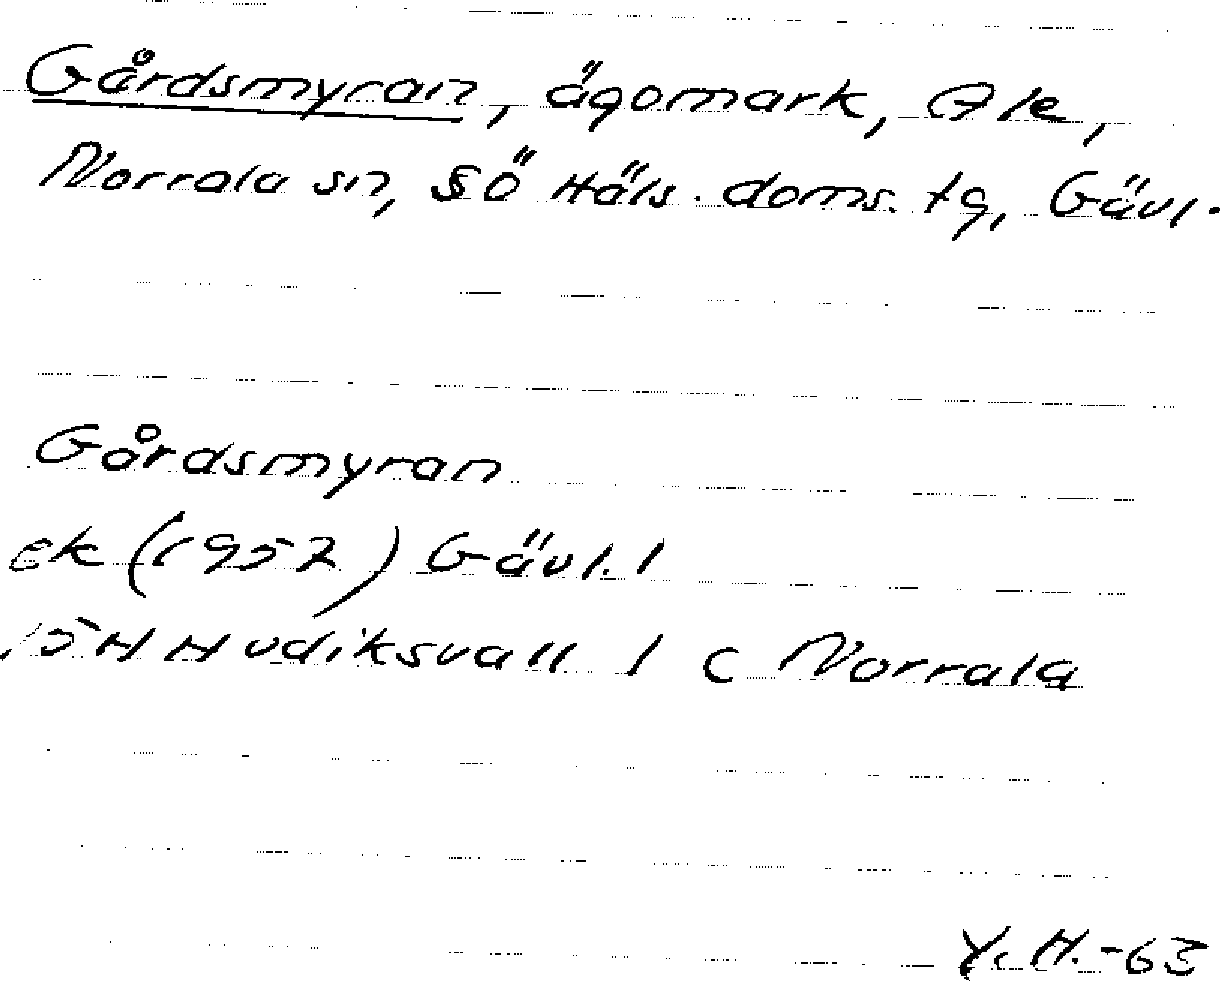 Gårdsmyran, ägomark, Ale,
Norrala sn, SÖ Häls. doms. tg, Gävl.
Gårdsmyran
ek (1952) Gävl. l
15H Hudiksvall 1 c Norrala
Y. H. -63